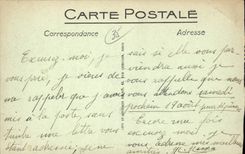 CARTE POSTALE
Correspondance
Adresse
35
Excusez-moi, je
vous prie, je viens de
me rappeler que j'avais
mis à la poste, sans
timbre une lettre vous
étant adressée, je ne
sais si elle vous par-
viendra aussi je
vous rappelle que nous
vous attendons samedi
prochain 18 août
Encore une fois
excusez-moi, je
vous adresse mes meilleures
amitiés